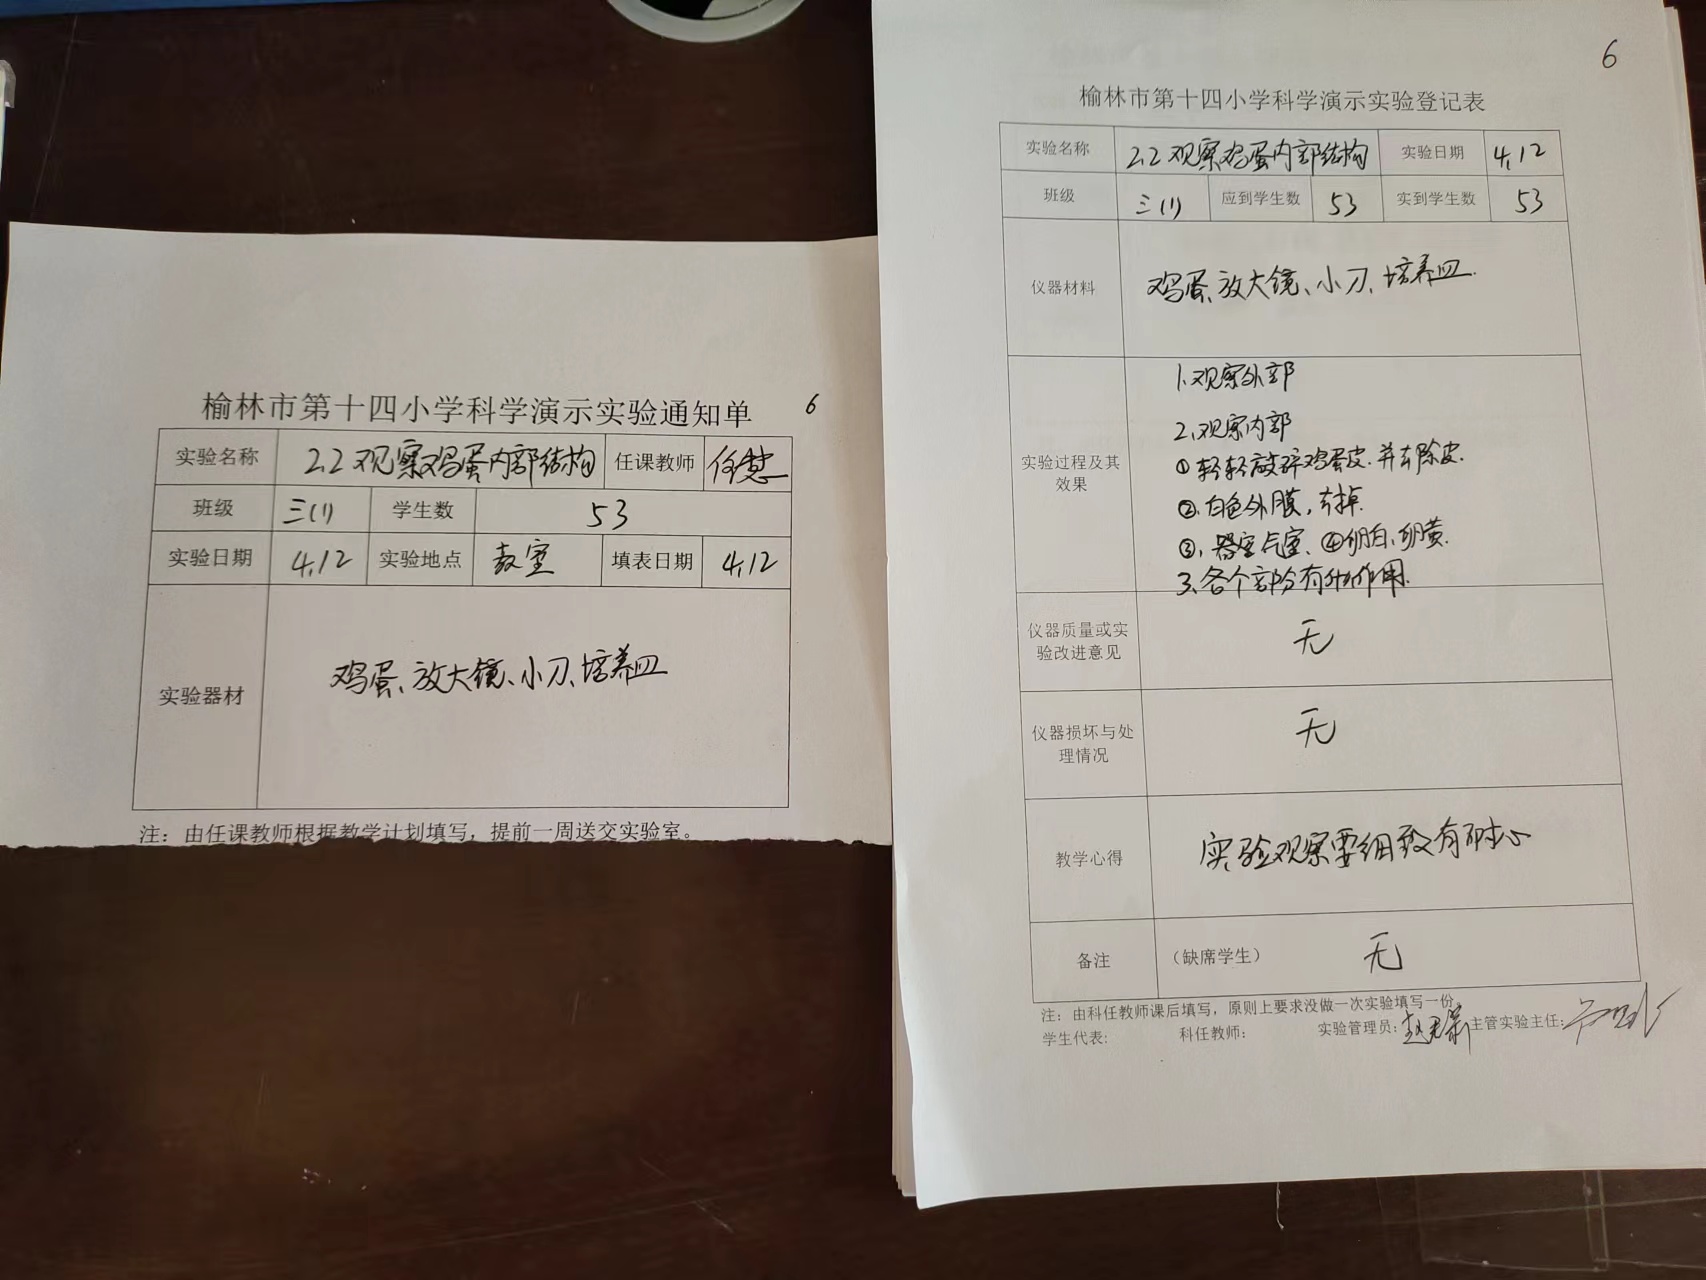 榆林市第十四小学科学演示实验通知单 6
实验名称 2.2 观察鸡蛋内部结构 任课教师 任慧
班级 三(1) 学生数 53
实验日期 4.12 实验地点 教室 填表日期 4.12
实验器材 鸡蛋、放大镜、小刀、培养皿
注：由任课教师根据教学计划填写，提前一周送交实验室。
6
榆林市第十四小学科学演示实验登记表
实验名称 2.2 观察鸡蛋内部结构 实验日期 4.12
班级 三(1) 应到学生数 53 实到学生数 53
仪器材料 鸡蛋、放大镜、小刀、培养皿.
实验过程及其
效果
1.观察外部
2.观察内部
①轻轻敲碎鸡蛋皮.并去除皮.
②.白色外膜,去掉.
③.气室、④卵白、卵黄.
3.各个部分有什么作用.
仪器质量或实
验改进意见
无
仪器损坏与处
理情况
无
教学心得 实验观察要细致有耐心
备注 （缺席学生） 无
注：由科任教师课后填写，原则上要求没做一次实验填写一份。
学生代表: 科任教师: 实验管理员: 主管实验主任: